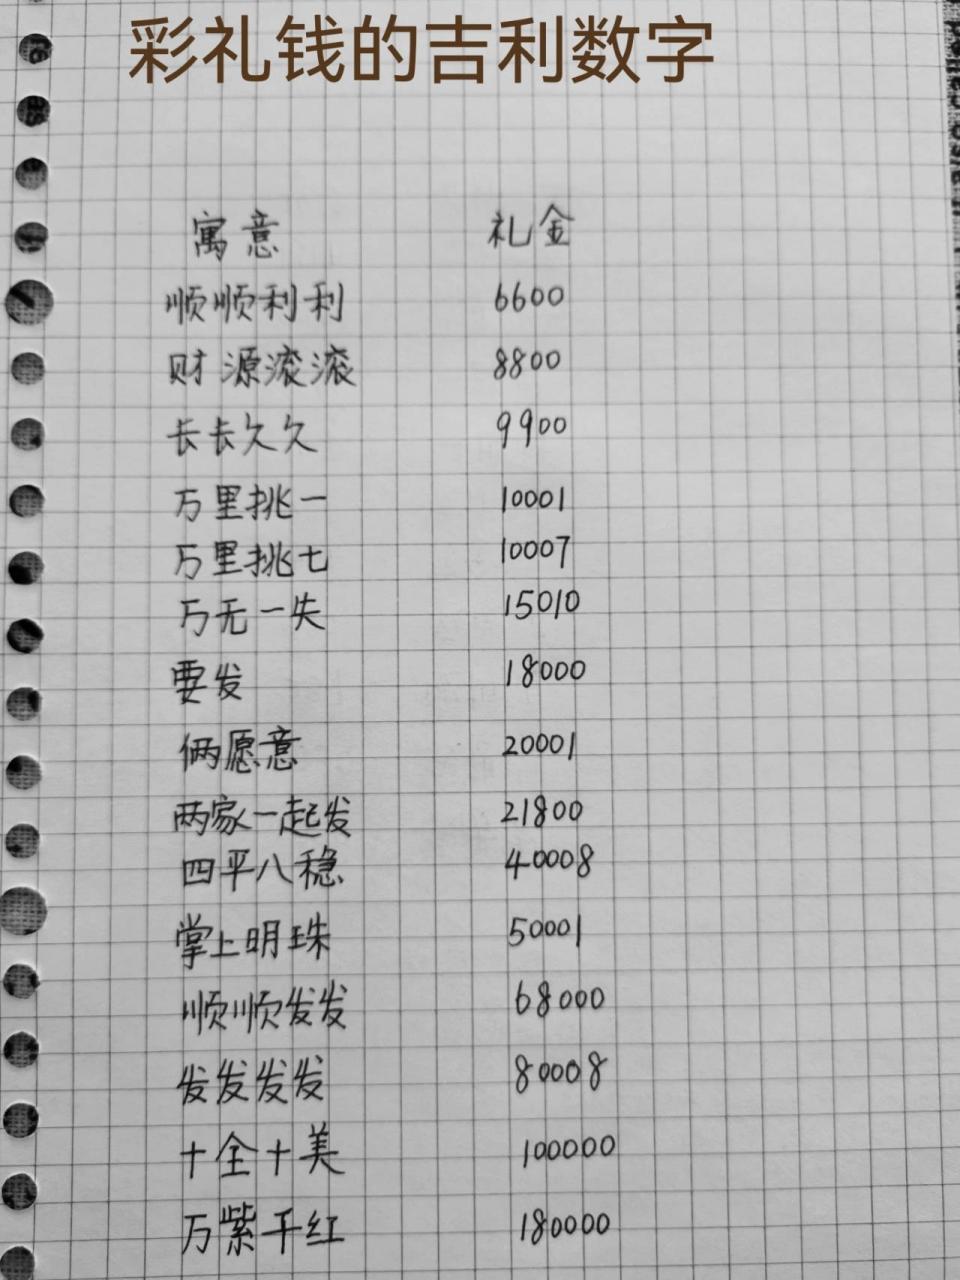 彩礼钱的吉利数字
寓意 礼金
顺顺利利 6600
财源滚滚 8800
长长久久 9900
万里挑一 10001
万里挑七 10007
万无一失 15010
要发 18000
俩愿意 20001
两家一起发 21800
四平八稳 40008
掌上明珠 50001
顺顺发发 68000
发发发发 80008
十全十美 100000
万紫千红 180000